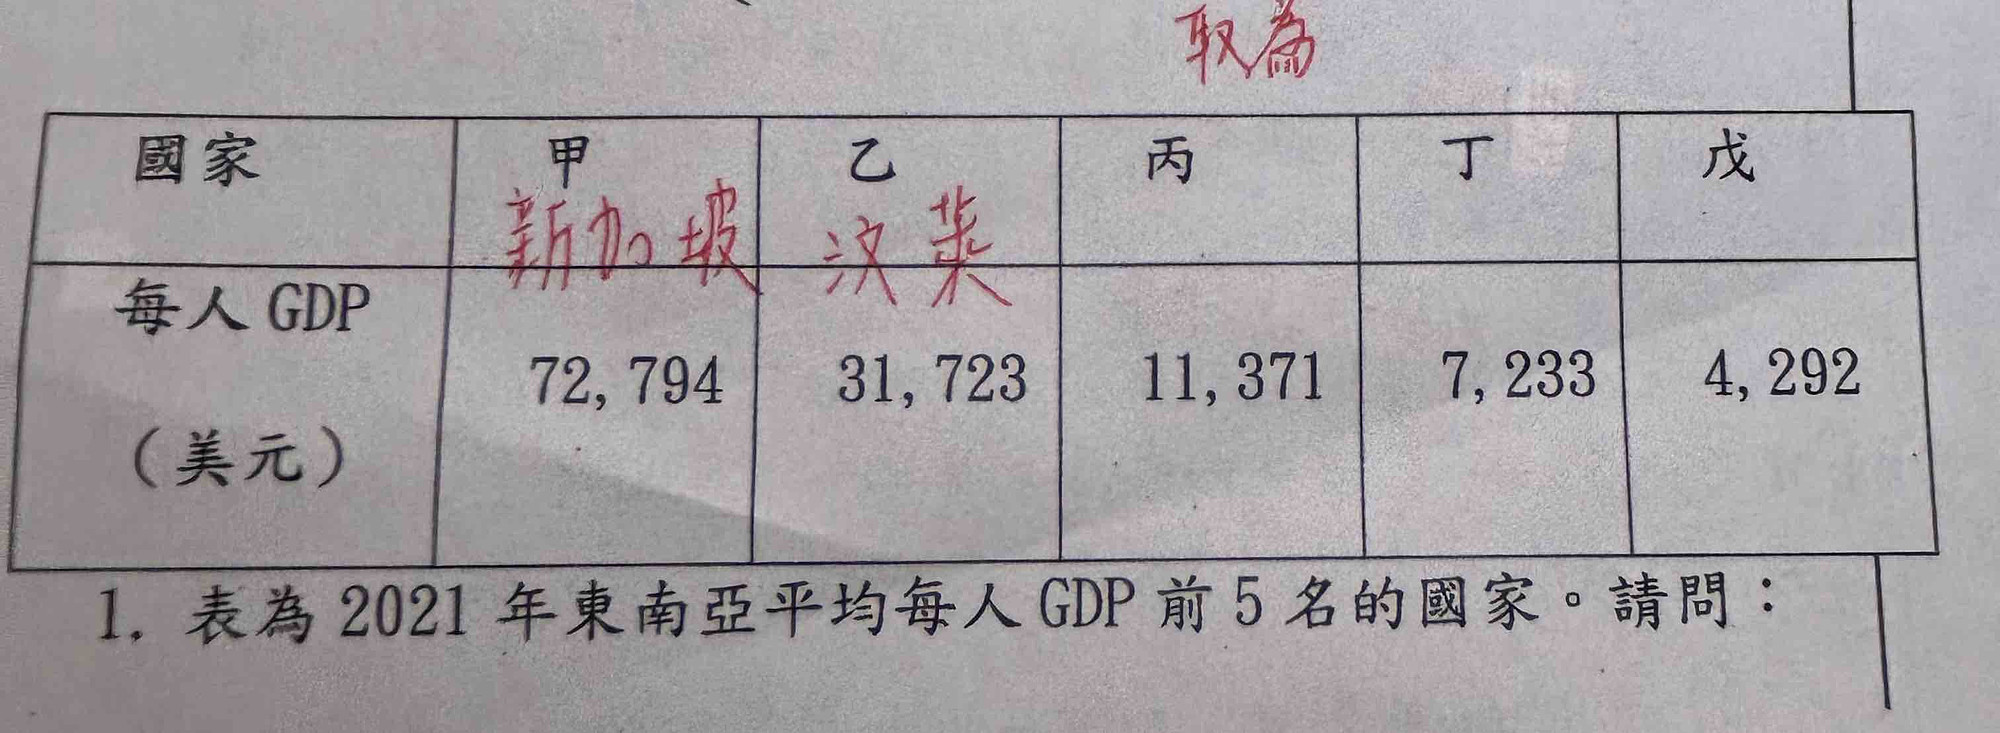 取為
國家 甲 乙 丙 丁 戊
新加坡 汶萊
每人GDP
72,794 31,723 11,371 7,233 4,292
(美元)
1. 表為2021年東南亞平均每人GDP前5名的國家。請問：